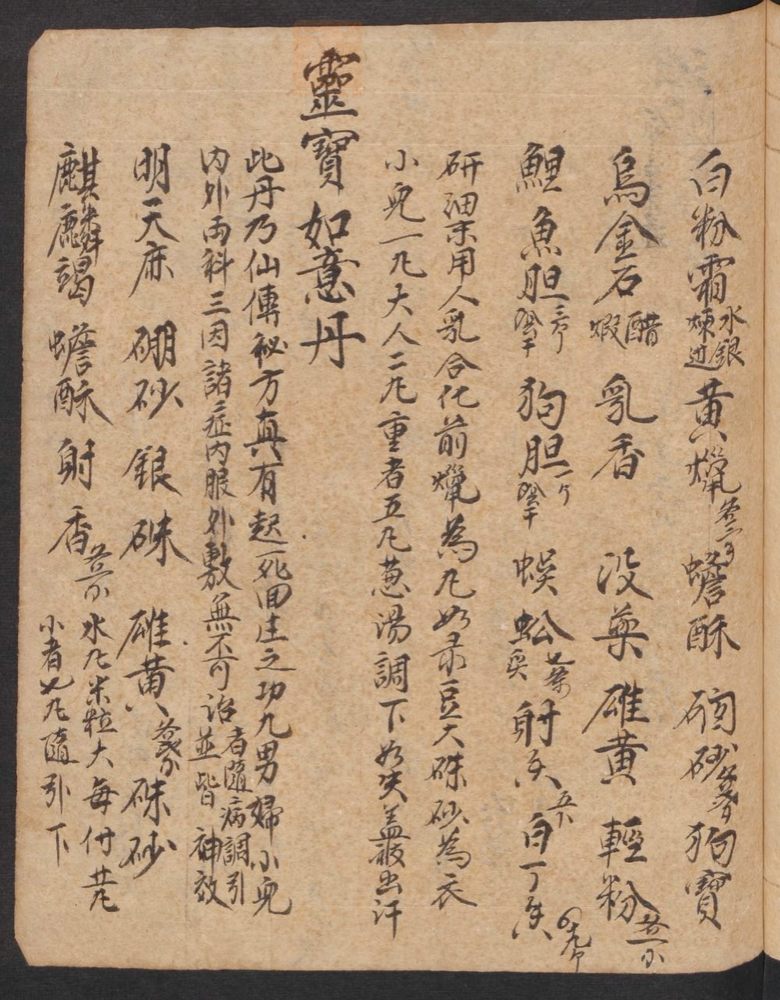 白粉霜水銀煉过黄爉 蟾酥 硇砂 狗寶
烏金石醋煆 乳香 没藥 雄黄 輕粉
鯉魚胆 狗胆 蜈蚣 射 白丁
研細末用人乳合化前爉為凡如彔豆大硃砂為衣
小兒一凡大人二凡重者五凡葱湯調下 蓋被出汗
靈寶如意丹
此丹乃仙傳秘方真有起死回生之功凡男婦小兒
内外両科三因諸症内服外敷無不可治者隨病調引並皆神效
明天麻 硼砂 銀硃 雄黄 硃砂
麒麟竭 蟾酥 射香 水凡米粒大每付
小者七凡隨引下